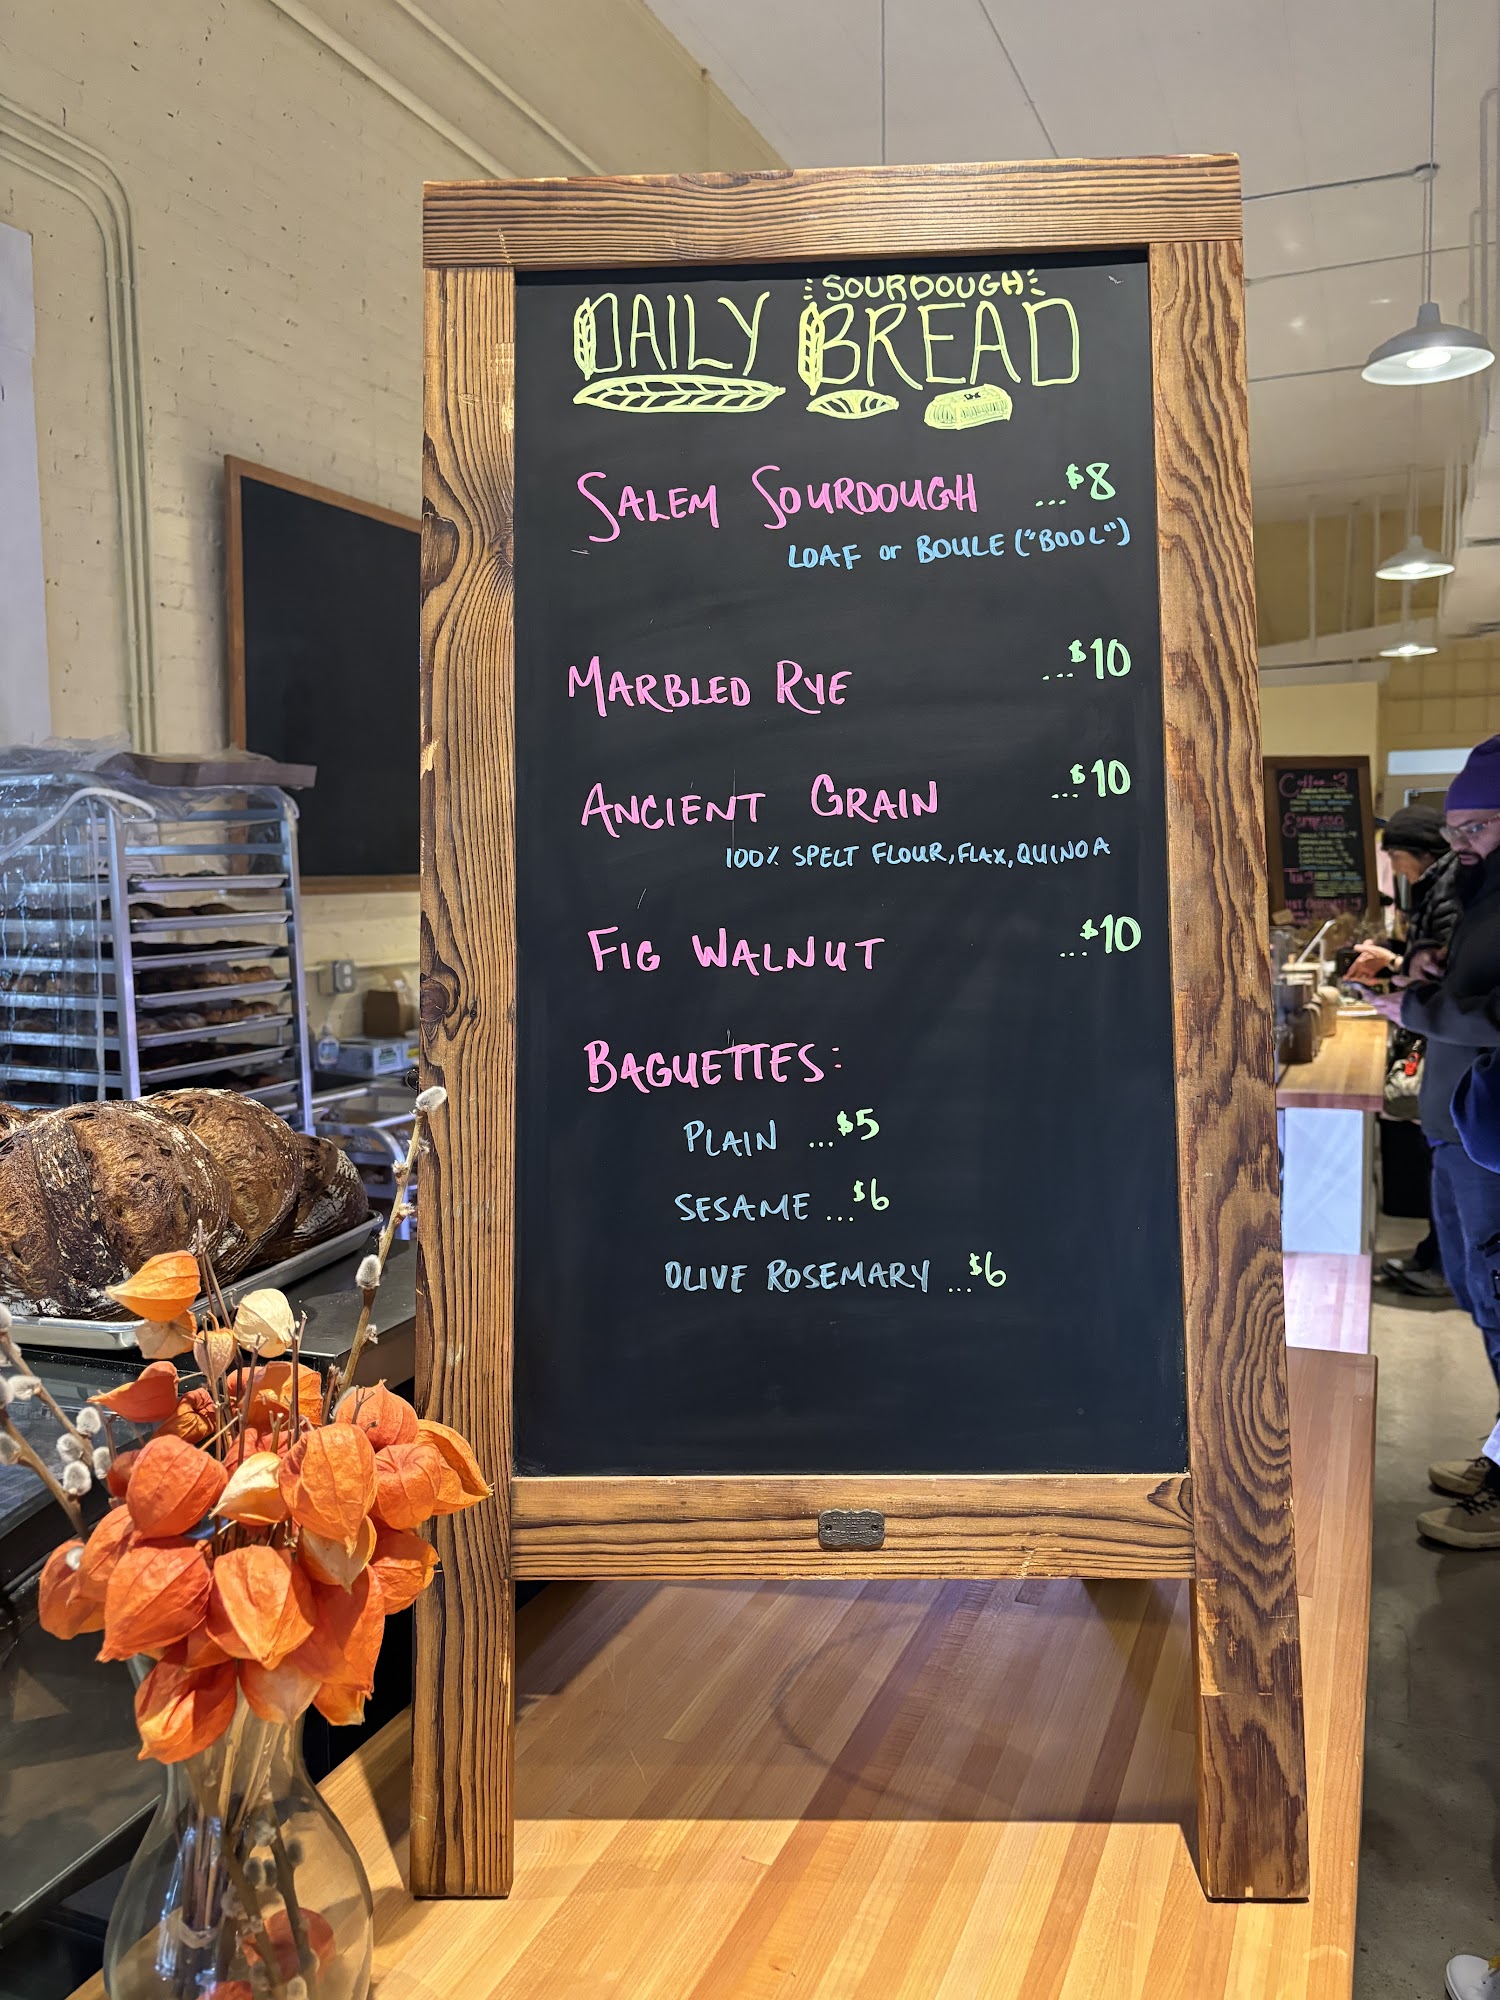 SOURDOUGH
DAILY BREAD
SALEM SOURDOUGH ...$8
LOAF or BOULE ("BOOL")
MARBLED RYE ...$10
ANCIENT GRAIN ...$10
100% SPELT FLOUR, FLAX, QUINOA
FIG WALNUT ...$10
BAGUETTES:
PLAIN ...$5
SESAME ...$6
OLIVE ROSEMARY ...$6
Coffee
Espresso